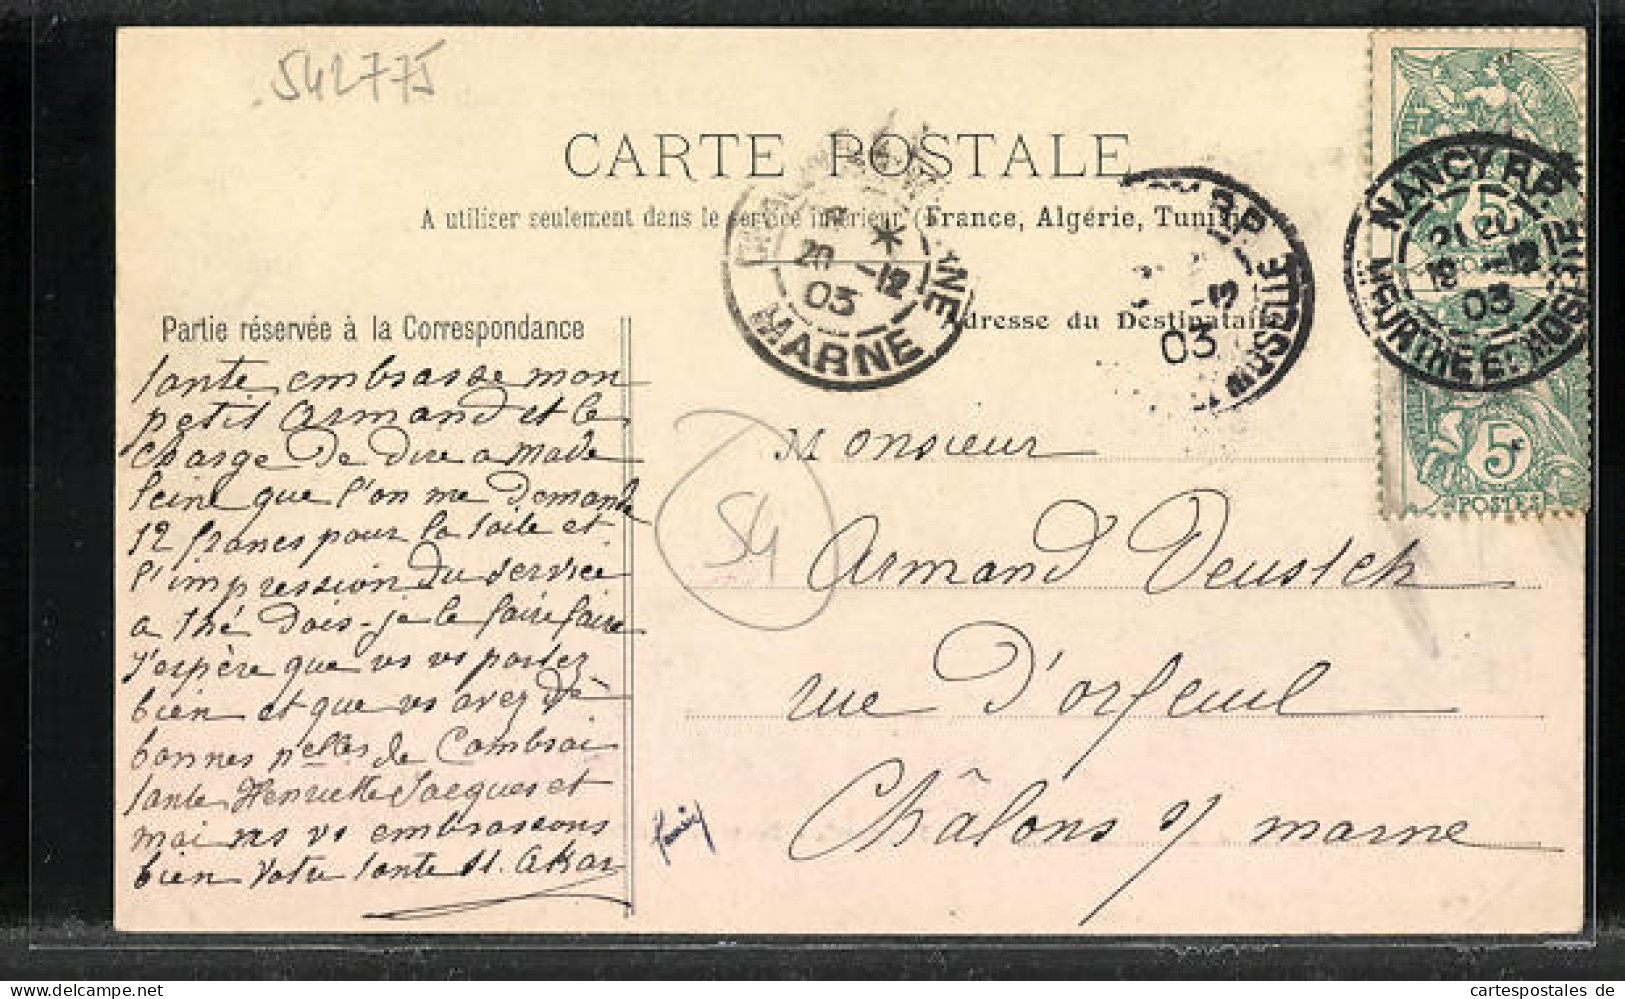 542775
CARTE POSTALE
A utiliser seulement dans le service intérieur (France, Algérie, Tunisie
Partie réservée à la Correspondance
Adresse du Destinataire
MARNE
20 -12
03
03
NANCY R.P.
21 20
19 -12
03
MEURTHE-E:-MOSELLE
5
POSTES
tante embrasse mon
petit Armand et le
charge de dire a Made
Seine que l'on me demande
12 francs pour la toile et
l'impression du service
a thé dois-je le faire faire
J'espère que vs vs portez
bien et que vs avez de
bonnes nelles de Cambrai
tante Henriette Jacques et
moi ns vs embrassons
bien Votre tante
Monsieur
Armand Deutsch
rue d'orfeuil
Châlons s/ marne
54
cartespostales de